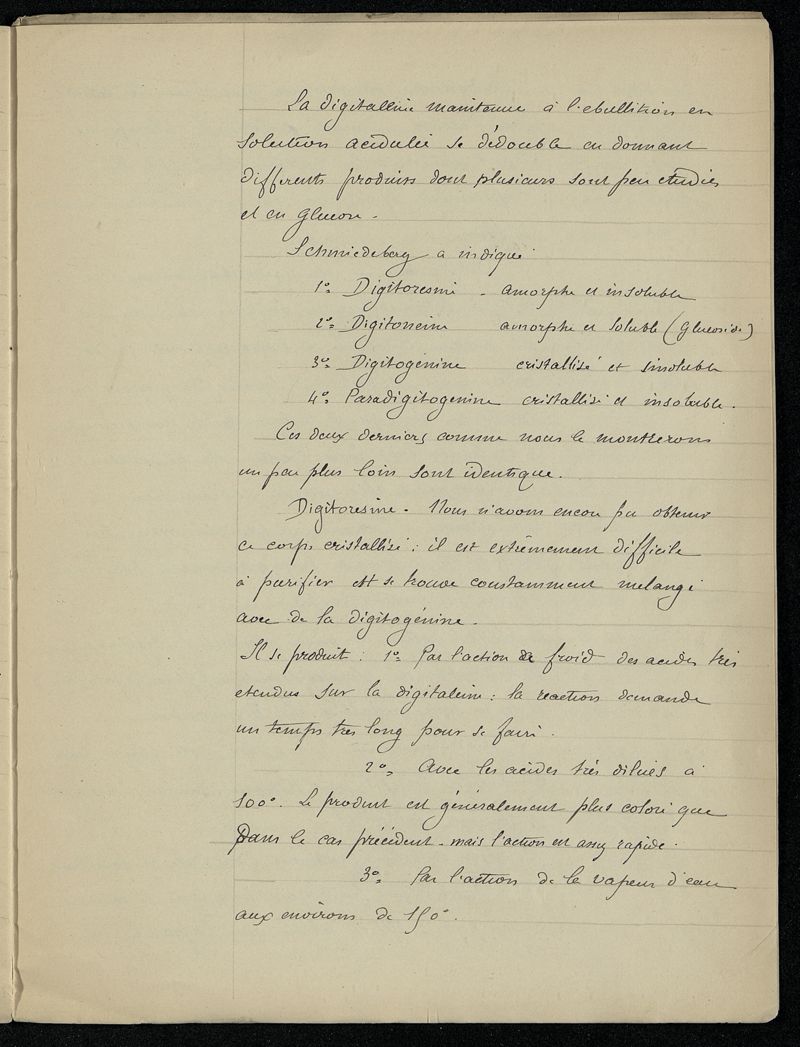 La digitaleine maintenue à l'ebullition en
solution acidulée se dédouble en donnant
differents produits dont plusieurs sont peu etudiés
et en glucose.
Schmiedeberg a indiqué
1º= Digitoresine - amorphe et insoluble
2º= Digitoneine amorphe et soluble (glucoside)
3º= Digitogénine cristallisé et insoluble
4º= Paradigitogenine cristallisé et insoluble.
Ces deux derniers comme nous le montrerons
un peu plus loin sont identique.
Digitoresine - Nous n'avons encore pu obtenir
ce corps cristallisé : il est extrêmement difficile
à purifier et se trouve constamment melangé
avec de la digitogénine.
Il se produit : 1º= Par l'action à froid des acides très
etendus sur la digitaleine : la reaction demande
un temps très long pour se faire.
2º= Avec les acides très dilués à
100º. Le produit est généralement plus coloré que
Dans le cas précédent - mais l'action est assez rapide.
3º= Par l'action de la vapeur d'eau
aux environs de 150º.